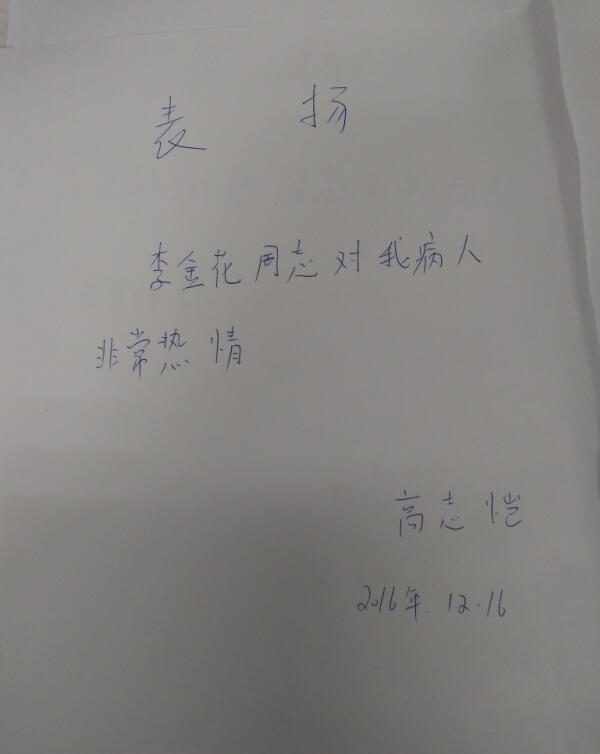 表 扬
李金花同志对我病人
非常热情
高志恺
2016年.12.16